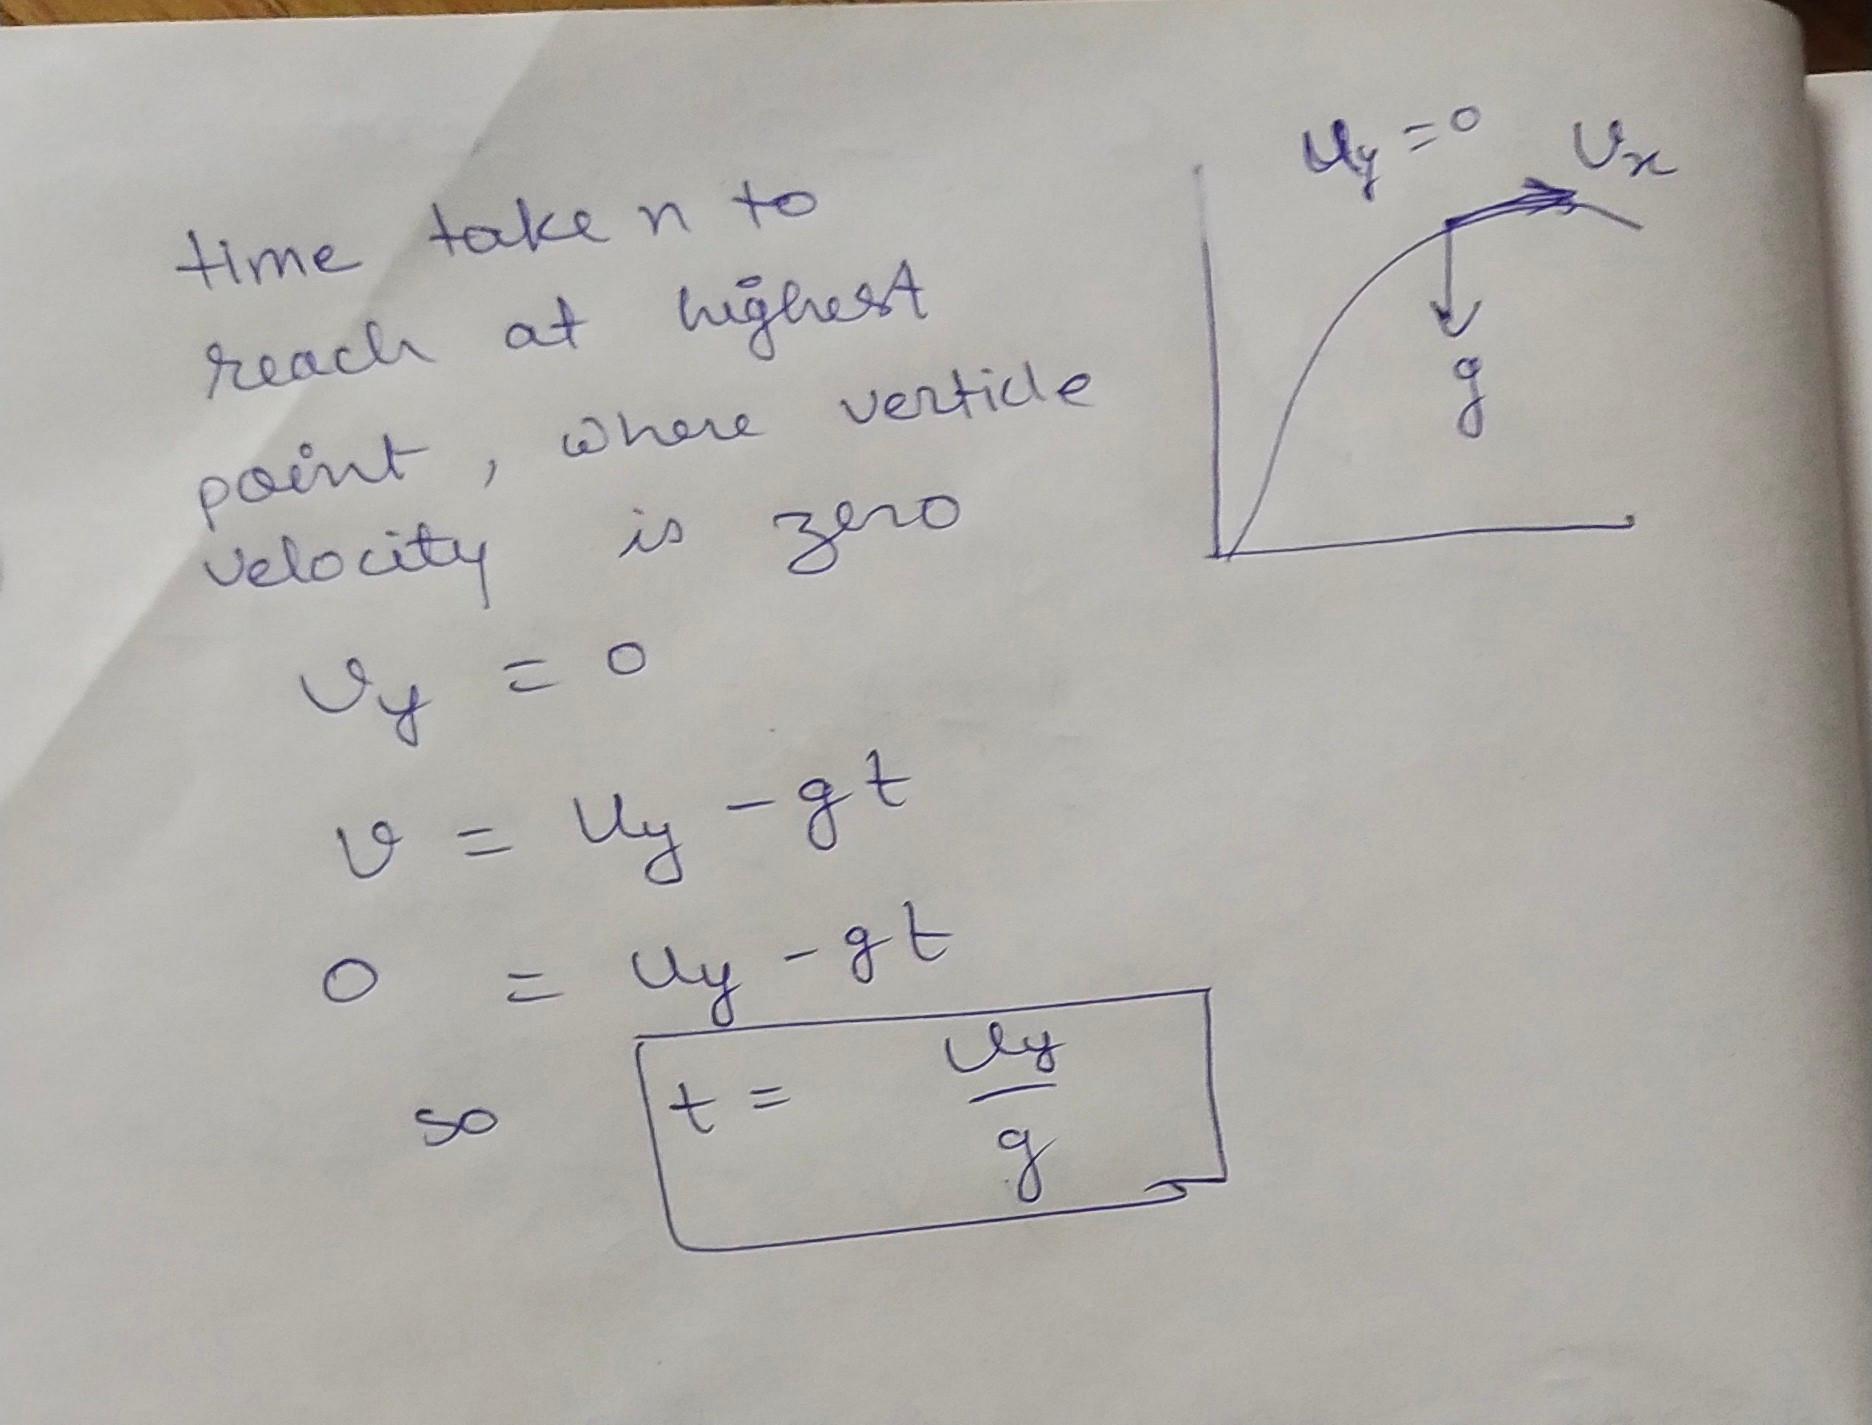 time taken to
reach at highest
point, where verticle
velocity is zero
v_y = 0
v = u_y - gt
0 = u_y - gt
so t = u_y / g
u_y = 0 v_x
g